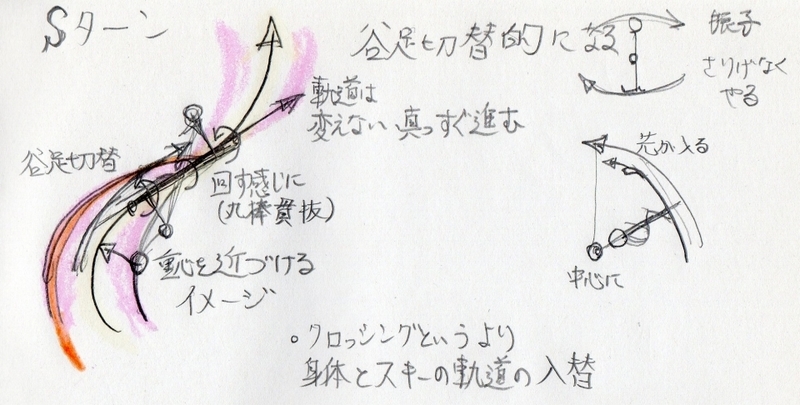 Sターン
谷足切替的になる
振子
さりげなく
やる
軌道は
変えない 真っすぐ進む
谷足切替
回す感じに
(丸棒貫抜)
芯が入る
中心に
重心を近づける
イメージ
○クロッシングというより
身体とスキーの軌道の入替